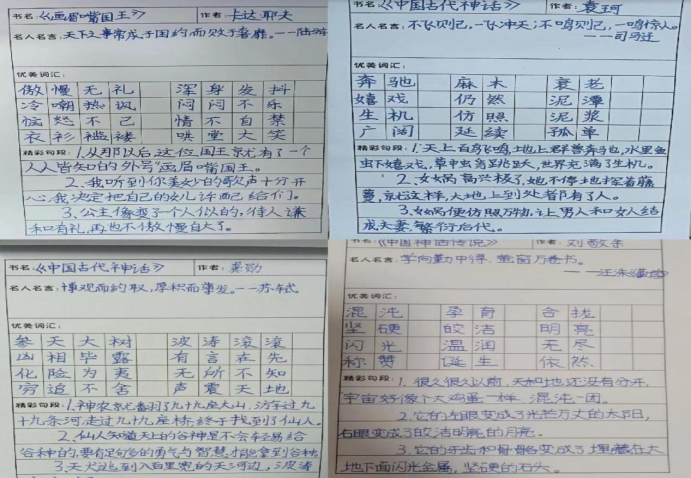 书名:《画眉嘴国王》 作者:卡达耶夫
名人名言:天下之事常成于困约而败于奢靡。——陆游
优美词汇:
傲慢无礼 浑身发抖
冷嘲热讽 闷闷不乐
恼怒不已 情不自禁
衣衫褴褛 哄堂大笑
精彩句段:1.从那以后,这位国王就有了一个
人人皆知的外号“画眉嘴国王。
2.我听到你美妙的歌声十分开
心,我决定把自己的女儿许配给你们。
3.公主像变了个人似的,待人谦
和有礼,再也不傲慢自大了。
书名:《中国古代神话》 作者:袁珂
名人名言:不飞则已,一飞冲天;不鸣则已,一鸣惊人。
——司马迁
优美词汇:
奔驰 麻木 衰老
嬉戏 仍然 泥潭
生机 仿照 泥浆
广阔 延续 孤单
精彩句段:1.天上百鸟飞鸣,地上群兽奔驰,水里鱼
虫下嬉戏,草中虫豸跳跃,世界充满了生机。
2.女娲高兴极了,她不停地挥着藤
蔓,就这样,大地上到处都有了人。
3.女娲便仿照万物,让男人和女人结
成夫妻,繁衍后代。
书名:《中国古代神话》 作者:龚勋
名人名言:博观而约取,厚积而薄发。——苏轼
优美词汇:
参天大树 波涛滚滚
凶相毕露 有言在先
化险为夷 无所不知
穷追不舍 声震天地
精彩句段:1.神农氏翻了九十九座大山,访车过九
十九条河,走过九十九座桥,终于找到了仙人。
2.仙人知道天上的谷神是不会轻易给
谷种的,要有足够多的勇气与智慧才能拿到谷种
3.天犬逃到八百里宽的天河边,波涛
书名:《中国神话传说》 作者:刘敬余
名人名言:学向勤中得,萤窗万卷书。
——汪洙
优美词汇:
混沌 孕育 合拢
坚硬 皎洁 明亮
闪光 温润 无尽
称赞 诞生 依然
精彩句段:1.很久很久以前,天和地还没有分开,
宇宙好像个大鸡蛋一样,混沌一团。
2.它的左眼变成了光芒万丈的太阳,
右眼变成了皎洁明亮的月亮。
3.它的牙齿和骨骼变成了埋藏在大
地下面闪光金属,坚硬的石头。